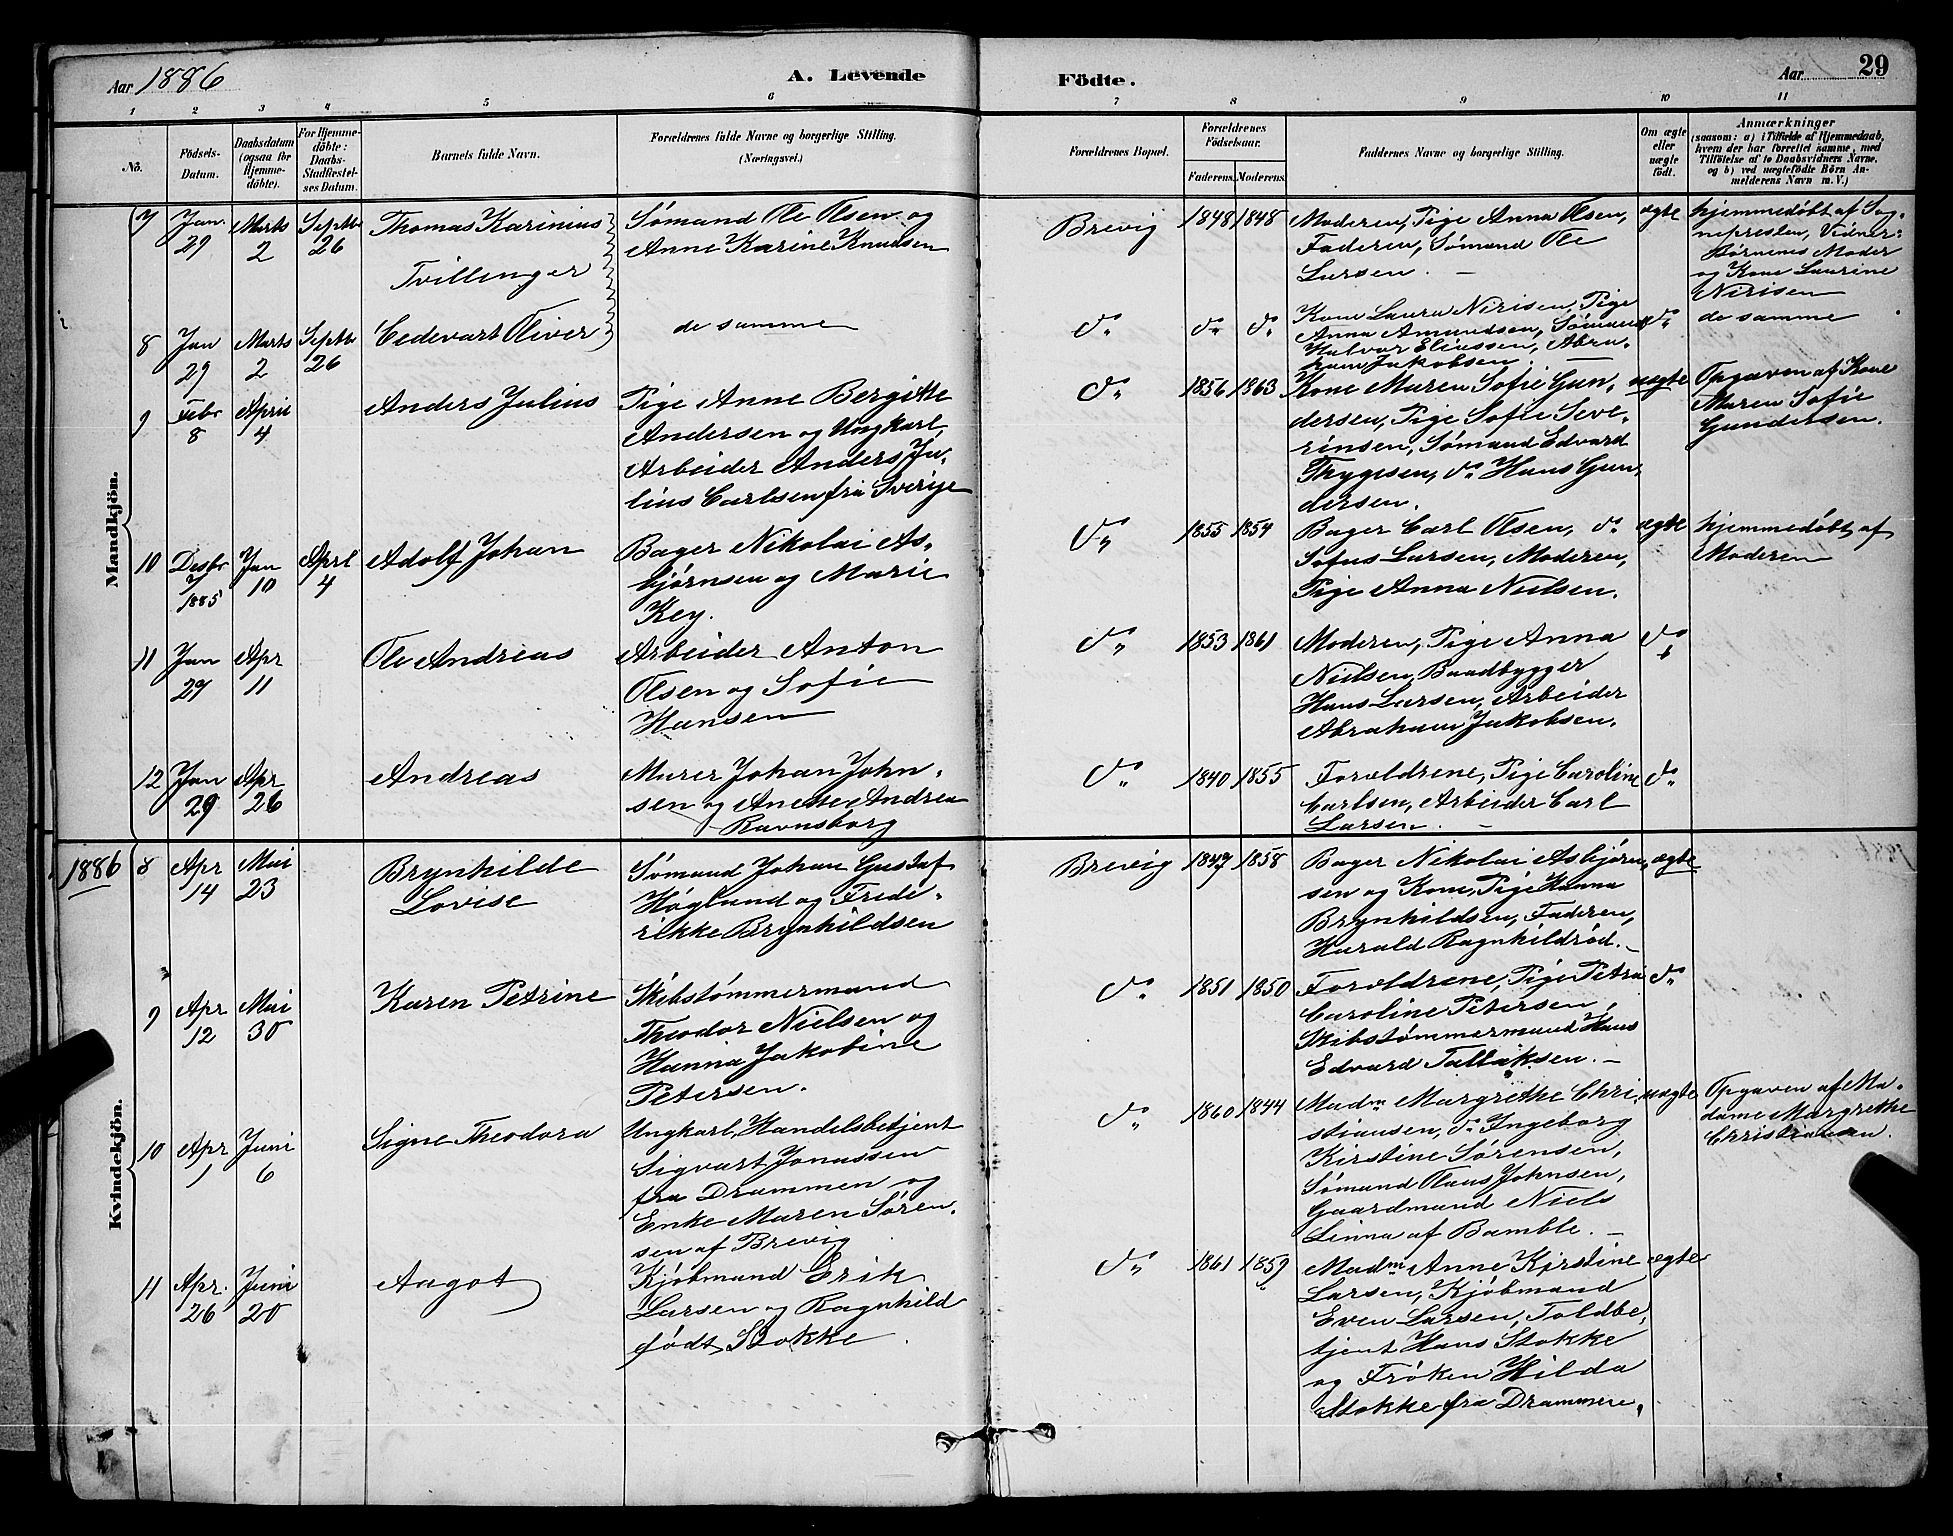 Aar 1886
A. Levende
Födte.
Aar
29
1 2 3 4 5 6 7 8 9 10 11
No.
Födsels-
Datum.
Daabsdatum
(ogsaa for
Hjemme-
döbte).
For Hjemme-
döbte:
Daabs-
Stadfæstel-
ses Datum.
Barnets fulde Navn.
Forældrenes fulde Navne og borgerlige Stilling.
(Næringsvei.)
Forældrenes Bopæl.
Forældrenes
Födselsaar.
Faderens. Moderens.
Faddernes Navne og borgerlige Stilling.
Om ægte
eller
uægte
födt.
Anmærkninger
(saasom: a) i Tilfælde af Hjemmedaab,
hvem der har forrettet samme, med
Tilföielse af to Daabsvidners Navne,
og b) ved uægtefödte Börn An-
melderens Navn m. V.)
Mandkjön.
7
Jan.
29
Marts
2
Septbr
26
Thomas Karinius
Tvillinger
Sømand Ole Olsen og
Anne Karine Knudsen
Brevig
1848
1848
Moderen, Pige Anna Olsen,
Faderen, Sømand Ole
Larsen. –
ægte
hjemmedøbt af Sog-
nepresten, Vidner:
Børnenes Moder
og Kone Laurine
Nirisen
8
Jan
29
Marts
2
Septbr
26
Cedevart Oliver
de samme
do
do
do
Kone Laura Nirisen, Pige
Anna Amundsen, Sømand
Halvor Eliassen, Abra-
ham Jakobsen. –
do
do samme
9
Febr
8
April
4
Anders Julius
Pige Anne Bergitte
Andersen og Ungkarl
Arbeider Anders Ju-
lius Carlsen fra Sverije
do
1856
1863
Kone Maren Sofie Gun-
dersen, Pige Sofie Seve-
rinsen, Sømand Edvard
Thygesen, do Hans Gun-
dersen.
uægte
Opgaven af Kone
Maren Sofie
Gundersen.
10
Desbr
7
1885
Jan
10
Aprl
4
Adolf Johan
Bager Nikolai As-
bjørnsen og Marie
Key.
do
1855
1854
Bager Carl Olsen, do
Sofus Larsen, Moderen,
Pige Anna Nielsen.
ægte
hjemmedøbt af
Moderen
11
Jan
29
Apr
11
Ole Andreas
Arbeider Anton
Olsen og Sofie
Hansen
do
1853
1861
Moderen, Pige Anna
Nielsen, Baadbygger
Hans Larsen, Arbeider
Abraham Jakobsen.
do
12
Jan
29
Apr
26
Andreas
Murer Johan John-
sen og Anette Andrea
Ravnsborg
do
1840
1855
Foreldrene, Pige Caroline
Carlsen, Arbeider Carl
Larsen. –
do
Kvindekjön.
1886
8
Apr
14
Mai
23
Brynhilde
Lovise
Sømand Johan Gustaf
Höglund og Frede-
rikke Brynhildsen
Brevig
1847
1858
Bager Nikolai Asbjørn-
sen og Kone, Pige Hanna
Brynhildsen, Faderen,
Harald Ragnhildrød. –
ægte
9
Apr
12
Mai
30
Karen Petrine
Skibstømmermand
Theodor Nielsen og
Hanna Jakobine
Petersen.
do
1851
1850
Foreldrene, Pige Petra
Caroline Petersen,
Skibstømmermand Hans
Edvard Tallaksen. –
do
10
Apr
1
Juni
6
Signe Theodora
Ungkarl, Handelsbetjent
Sigvart Jonassen
fra Drammen og
Enke Maren Søren-
sen af Brevig
do
1860
1844
Madm Margrethe Chri-
stiansen, do Ingeborg
Kirstine Sørensen,
Sømand Claus Johnsen,
Gaardmand Niels
Linna af Bamble. –
uægte
Opgaven af Ma-
dame Margrethe
Christiansen.
11
Apr.
26
Juni
20
Aagot
Kjøbmand Erik
Larsen og Ragnhild
født Stokke
do
1861
1859
Madm Anne Kirstine
Larsen, Kjøbmand
Even Larsen, Toldbe-
tjent Hans Stokke
og Frøken Hilda
Stokke fra Drammen.
ægte